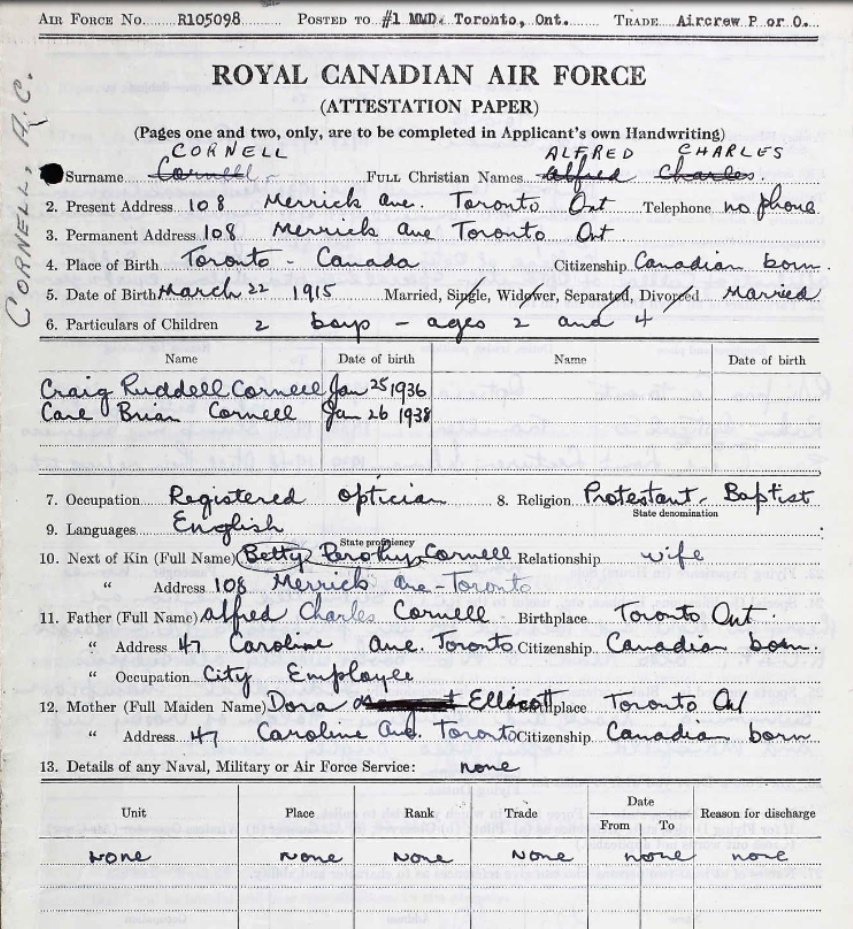 AIR FORCE NO. R105098 POSTED TO #1 MMD. Toronto, Ont. TRADE Aircrew P or O.
CORNELL, A.C.
ROYAL CANADIAN AIR FORCE
(ATTESTATION PAPER)
(Pages one and two, only, are to be completed in Applicant's own Handwriting)
CORNELL ALFRED CHARLES
Surname Cornell FULL CHRISTIAN NAMES alfred Charles
2. Present Address 108 Merrick Ave. Toronto Ont Telephone no phone
3. Permanent Address 108 Merrick Ave Toronto Ont
4. Place of Birth Toronto - Canada Citizenship Canadian born.
5. Date of Birth March 22 1915 Married, Single, Widower, Separated, Divorced Married
6. Particulars of Children 2 boys - ages 2 and 4
Name Date of birth Name Date of birth
Craig Ruddell Cornell Jan 25 1936
Carl Brian Cornell Jan 26 1938
7. Occupation Registered optician 8. Religion Protestant - Baptist
State denomination
9. Languages English
State proficiency
10. Next of Kin (Full Name) Betty Cornell Relationship wife
" Address 108 Merrick Ave - Toronto
11. Father (Full Name) Alfred Charles Cornell Birthplace Toronto Ont.
" Address 47 Caroline Ave. Toronto Citizenship Canadian born.
" Occupation City Employee
12. Mother (Full Maiden Name) Dora Ellicott Birthplace Toronto Ont
" Address 47 Caroline Ave. Toronto Citizenship Canadian born
13. Details of any Naval, Military or Air Force Service: none
Unit Place Rank Trade Date Reason for discharge
From To
none none none none none none